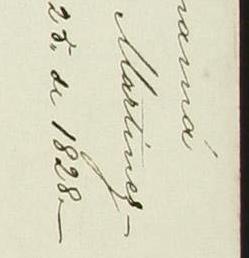 namá
Martinez—
25. de 1828.—